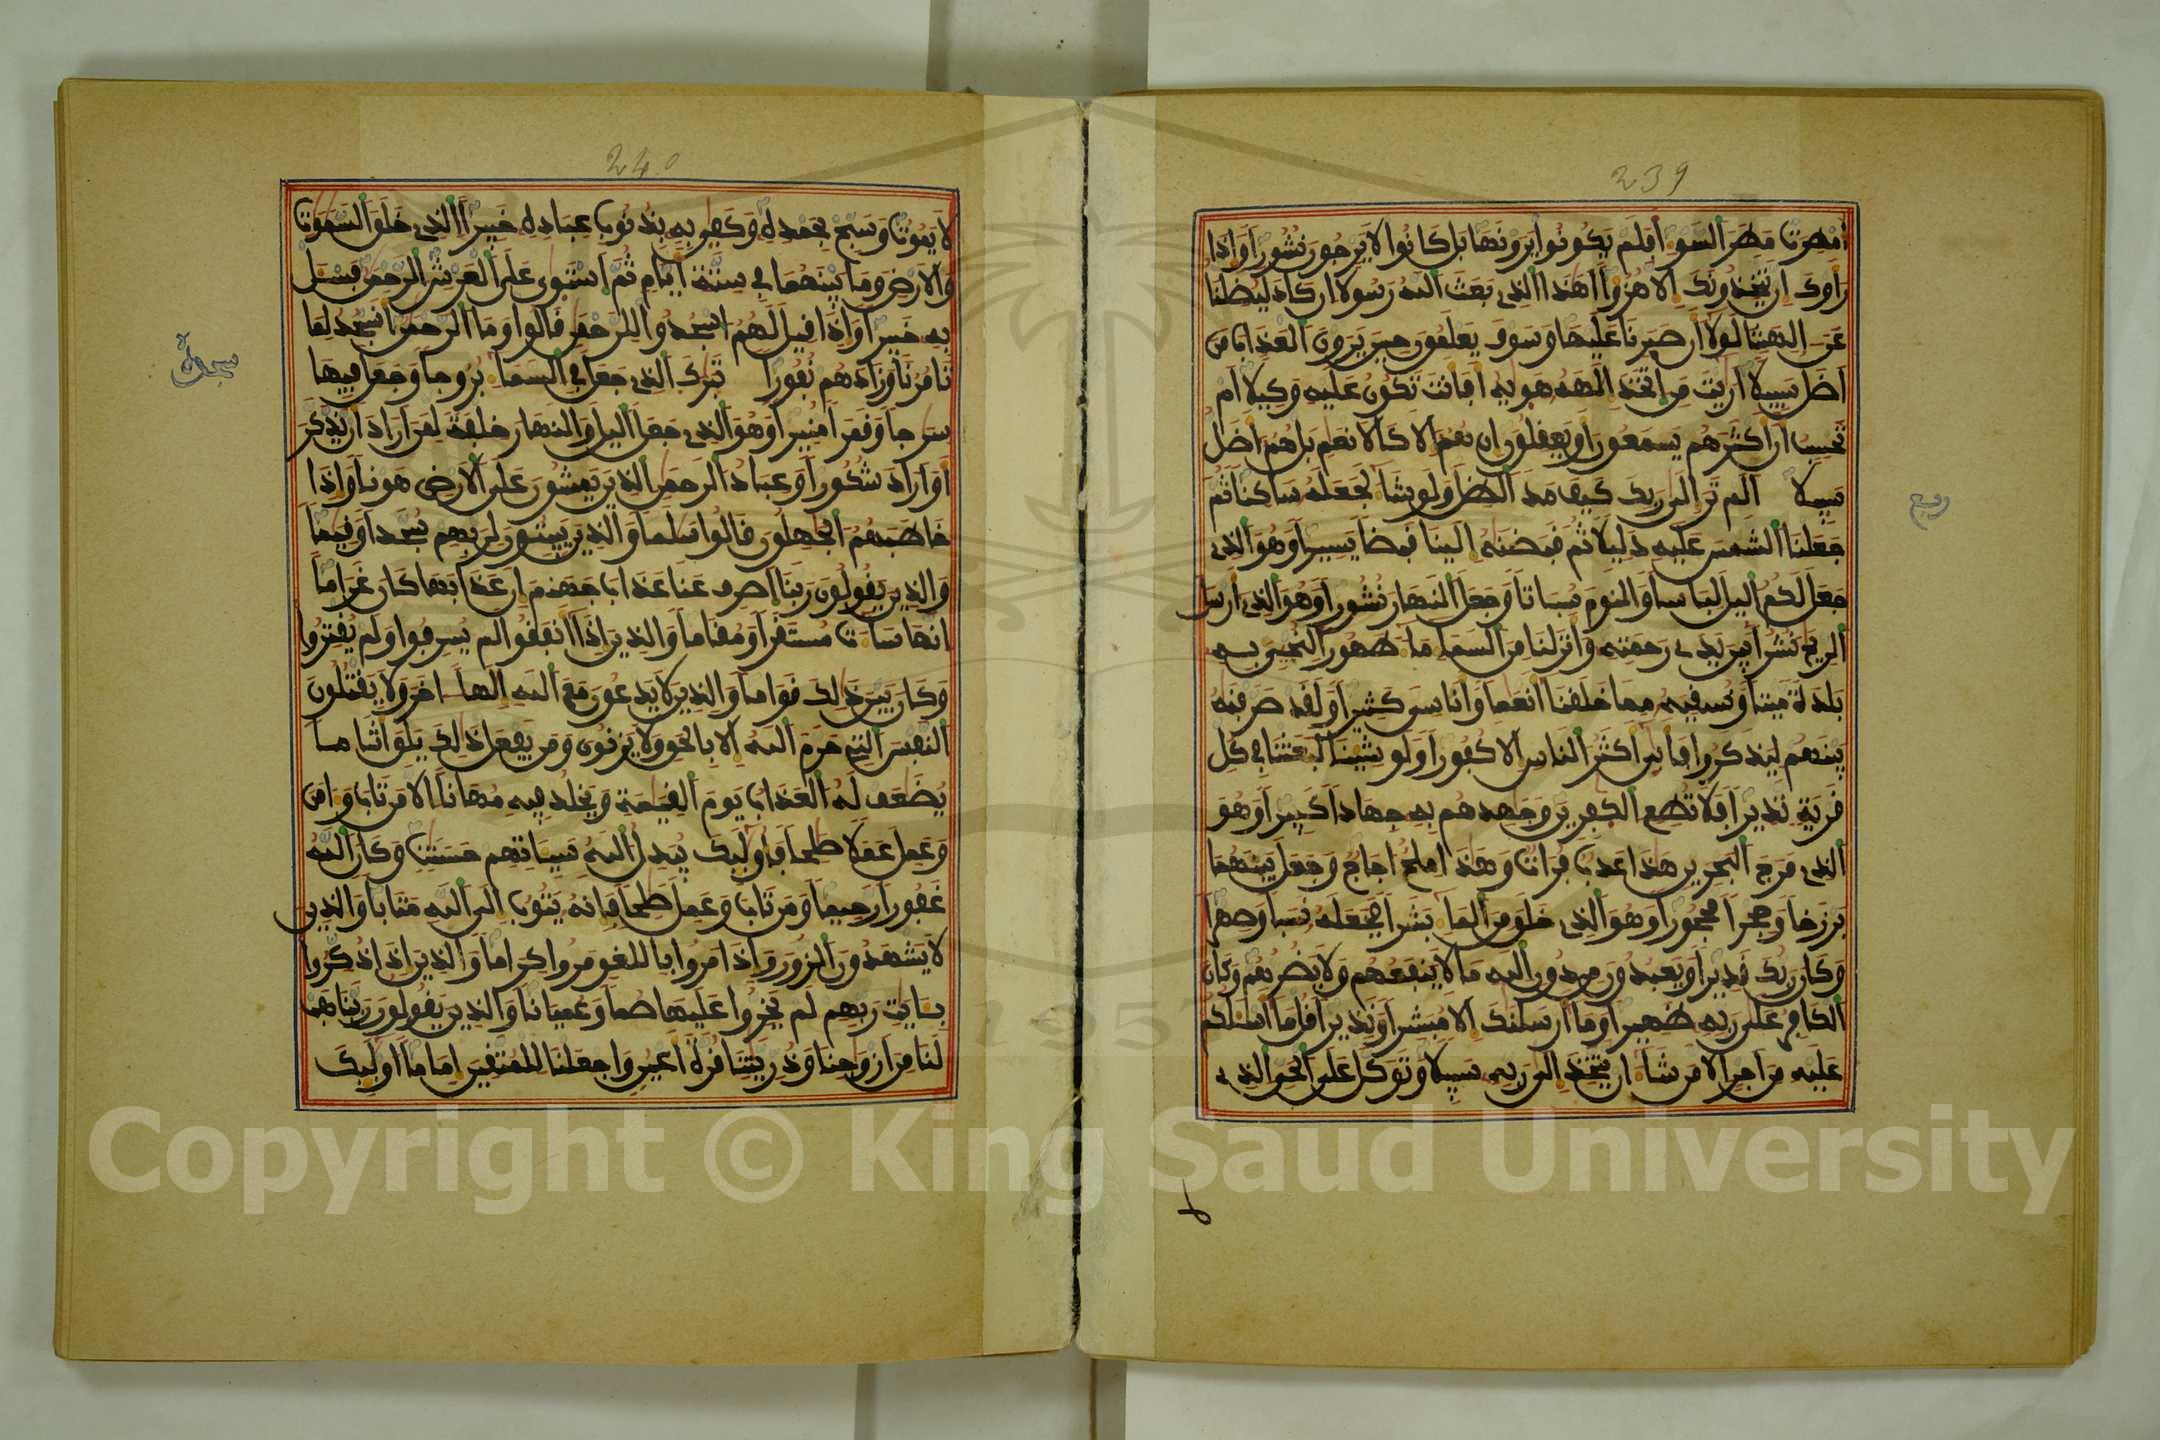 239
أمطرت مطر السوء أفلم يكونوا يرونها بل كانوا لا يرجون نشورا وإذا
رأوك إن يتخذونك إلا هزؤا أهذا الذي بعث الله رسولا إن كاد ليضلنا
عن ءالهتنا لولا أن صبرنا عليها وسوف يعلمون حين يرون العذاب من
أضل سبيلا أريت من اتخذ إلهه هويه أفأنت تكون عليه وكيلا أم
تحسب أن أكثرهم يسمعون أو يعقلون إن هم إلا كالأنعم بل هم أضل
سبيلا ألم تر إلى ربك كيف مد الظل ولو شاء لجعله ساكنا ثم
جعلنا الشمس عليه دليلا ثم قبضنه إلينا قبضا يسيرا وهو الذي
جعل لكم اليل لباسا والنوم سباتا وجعل النهار نشورا وهو الذي أرسل
الريح نشرا بين يدي رحمته وأنزلنا من السماء ماء طهورا لنحيي به
بلدة ميتا ونسقيه مما خلقنا أنعما وأناسي كثيرا ولقد صرفنه
بينهم ليذكروا فأبى أكثر الناس إلا كفورا ولو شينا لبعثنا في كل
قرية نذيرا فلا تطع الكفرين وجهدهم به جهادا كبيرا وهو
الذي مرج البحرين هذا عذب فرات وهذا ملح أجاج وجعل بينهما
برزخا وحجرا محجورا وهو الذي خلق من الماء بشرا فجعله نسبا وصهرا
وكان ربك قديرا ويعبدون من دون الله ما لا ينفعهم ولا يضرهم وكان
الكافر على ربه ظهيرا وما أرسلنك إلا مبشرا ونذيرا قل ما أسلكم
عليه من أجر إلا من شاء أن يتخذ إلى ربه سبيلا وتوكل على الحي الذي
ربع
240
لا يموت وسبح بحمده وكفى به بذنوب عباده خبيرا الذي خلق السموت
والأرض وما بينهما في ستة أيام ثم استوى على العرش الرحمن فسل
به خبيرا وإذا قيل لهم اسجدوا للرحمن قالوا وما الرحمن أنسجد لما
تامرنا وزادهم نفورا تبرك الذي جعل في السماء بروجا وجعل فيها
سرجا وقمرا منيرا وهو الذي جعل اليل والنهار خلفة لمن أراد أن يذكر
أو أراد شكورا وعباد الرحمن الذين يمشون على الأرض هونا وإذا
خاطبهم الجهلون قالوا سلما والذين يبيتون لربهم سجدا وقيما
والذين يقولون ربنا اصرف عنا عذاب جهنم إن عذابها كان غراما
انها ساءت مستقرا ومقاما والذين إذا أنفقوا لم يسرفوا ولم يقتروا
وكان بين ذلك قواما والذين لا يدعون مع الله إلها ءاخر ولا يقتلون
النفس التي حرم الله إلا بالحق ولا يزنون ومن يفعل ذلك يلق أثاما
يضعف له العذاب يوم القيمة ويخلد فيه مهانا إلا من تاب وءامن
وعمل عملا صلحا فأولئك يبدل الله سيئاتهم حسنت وكان الله
غفورا رحيما ومن تاب وعمل صلحا فإنه يتوب إلى الله متابا والذين
لا يشهدون الزور وإذا مروا باللغو مروا كراما والذين إذا ذكروا
بئايت ربهم لم يخروا عليها صما وعميانا والذين يقولون ربنا هب
لنا من أزوجنا وذريتنا قرة أعين واجعلنا للمتقين إماما أولئك
سجدة
Copyright © King Saud University
1957